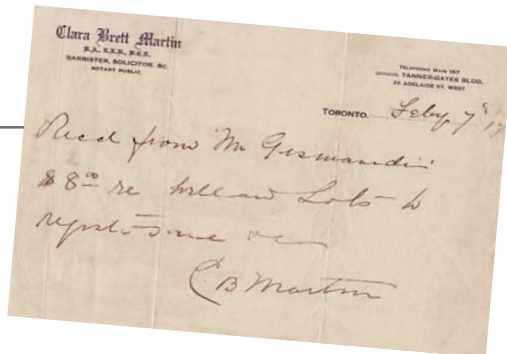 Clara Brett Martin
B.A., LL.B., B.C.L.
BARRISTER, SOLICITOR, &c.
NOTARY PUBLIC
TELEPHONE MAIN 187
OFFICES, TANNER-GATES BLDG.
26 ADELAIDE ST. WEST
TORONTO, Feby 7
Recd from Mr
$8.00 re Lots to
C B Martin